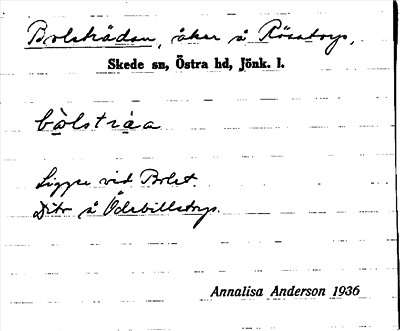 Bolstrådan, åker å Rösatorp,
Skede sn, Östra hd, Jönk. l.
bòlstràa
Ligger vid Bolet.
Dito å Ödebillstorp.
Annalisa Anderson 1936